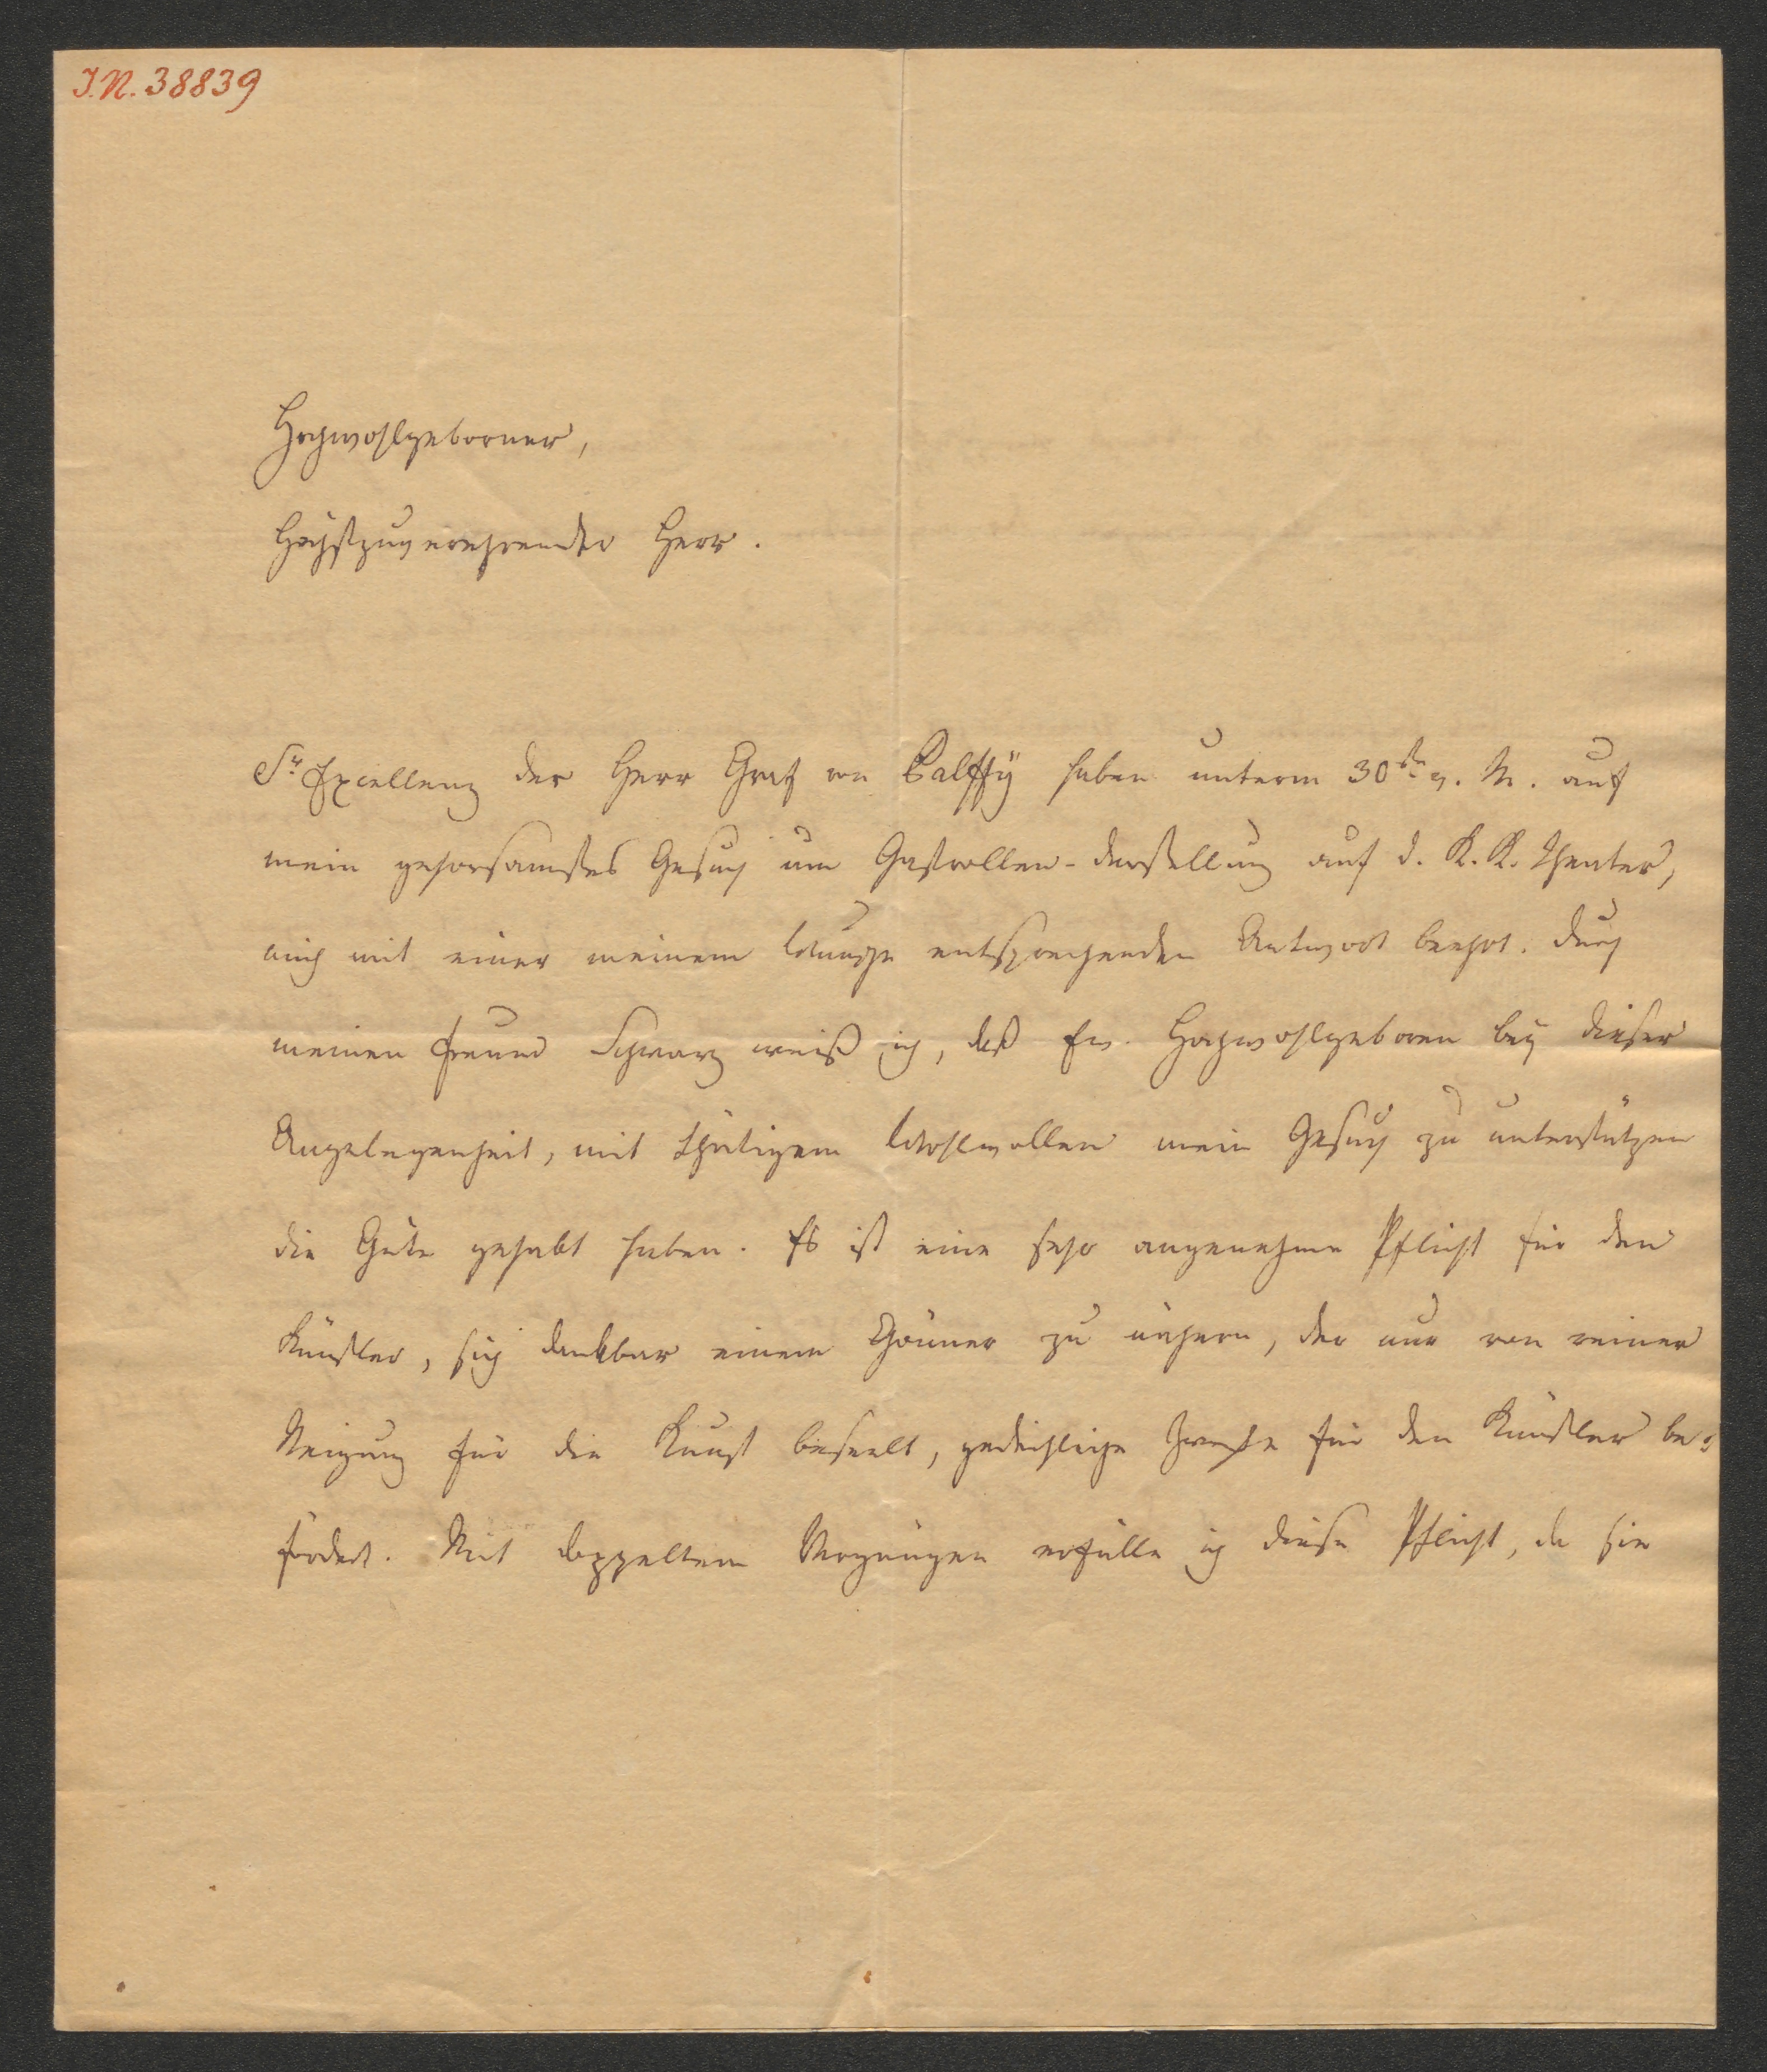 I.N. 38839
Hochwohlgeborner,
Höchstzuverehrender Herr.
Sr Excellenz der Herr Graf von Palffÿ haben unterm 30ten v. M. auf
mein gehorsamstes Gesuch um Gastrollen-Darstellung auf d. K. K. Theater,
mich mit einer meinem Wunsche entsprechenden Antwort beehrt. Durch
meinen Freund Schwarz weiß ich, daß Ew. Hochwohlgeboren beÿ dieser
Angelegenheit, mit thätigem Wohlwollen mein Gesuch zu unterstützen
die Güte gehabt haben. Es ist eine sehr angenehme Pflicht für den
Künstler, sich dankbar einem Gönner zu nähern, der nur von reiner
Neigung für die Kunst beseelt, gedeihliche Zwecke für den Künstler be-
fördert. Mit doppeltem Vergnügen erfülle ich diese Pflicht, da sie